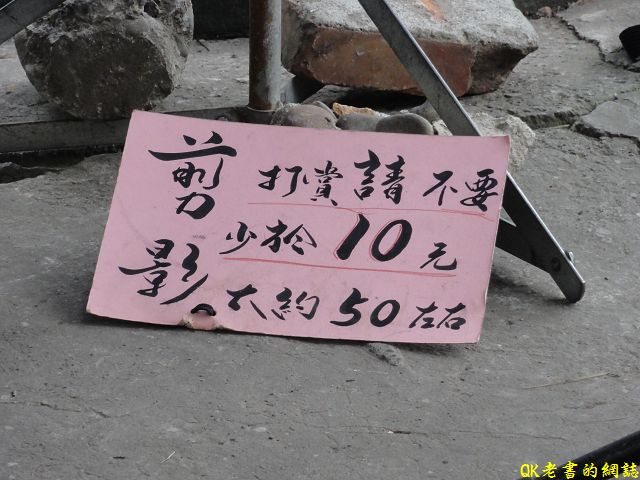 剪影
打賞請不要
少於10元
大約50左右
QK老書的網誌